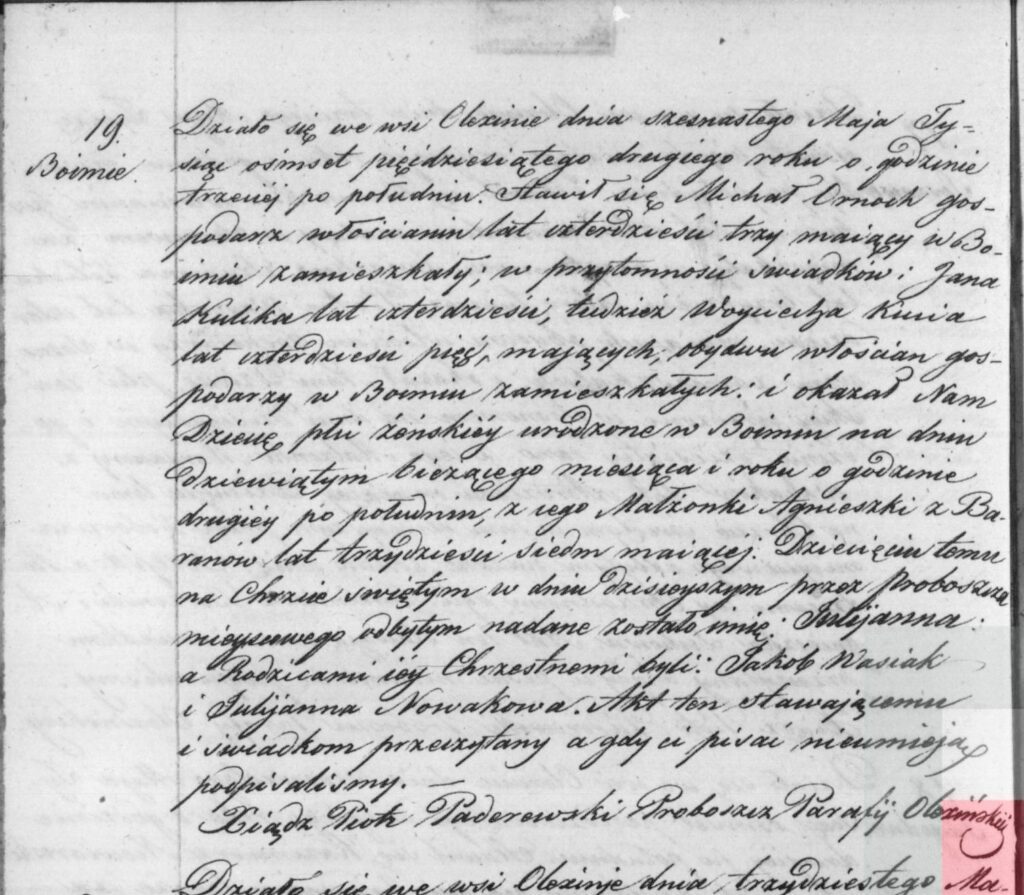 19.
Boimie.
Działo się we wsi Olexinie dnia szesnastego Maja Ty-
siąc ośmset pięćdziesiątego drugiego roku o godzinie
trzeciej po południu. Stawił się Michał Ornoch gos-
podarz włościanin lat czterdzieści trzy maiący w Bo-
imiu zamieszkały; w przytomności świadków: Jana
Kulika lat czterdzieści, tudzież Woyciecha Kucia
lat czterdzieści pięć, mających, obydwu włościan gos-
podarzy w Boimiu zamieszkałych: i okazał Nam
Dziecię płci żeńskiey urodzone w Boimiu na dniu
dziewiątym bieżącego miesiąca i roku o godzinie
drugiéy po południu, z iego Małżonki Agnieszki z Ba-
ranów lat trzydzieści siedm maiącej. Dziecięciu temu
na Chrzcie świętym w dniu dzisieyszym przez Proboszcza
mieyscowego odbytym nadane zostało imię: Julijanna:
a Rodzicami iéy Chrzestnemi byli: Jakób Wasiak
i Julijanna Nowakowa. Akt ten stawającemu
i świadkom przeczytany a gdy ci pisać nieumieją
podpisaliśmy. —
Xiądz Piotr Paderewski Proboszcz Parafij Olexińskij
Działo się we wsi Olexinie dnia trzydziestego Ma-